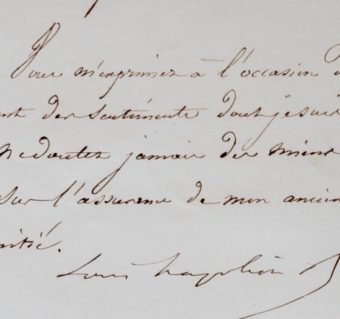 Vous m'exprimez à l'occasion
des sentiments dont je suis
ne doutez jamais des miens
sur l'assurance de mon ancien
itié.
Louis Napoléon